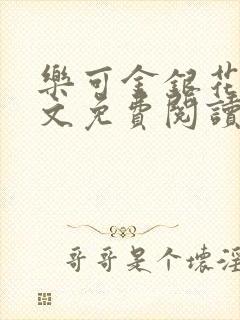 樂可金銀花
文免費閱讀
哥哥是个壞淫